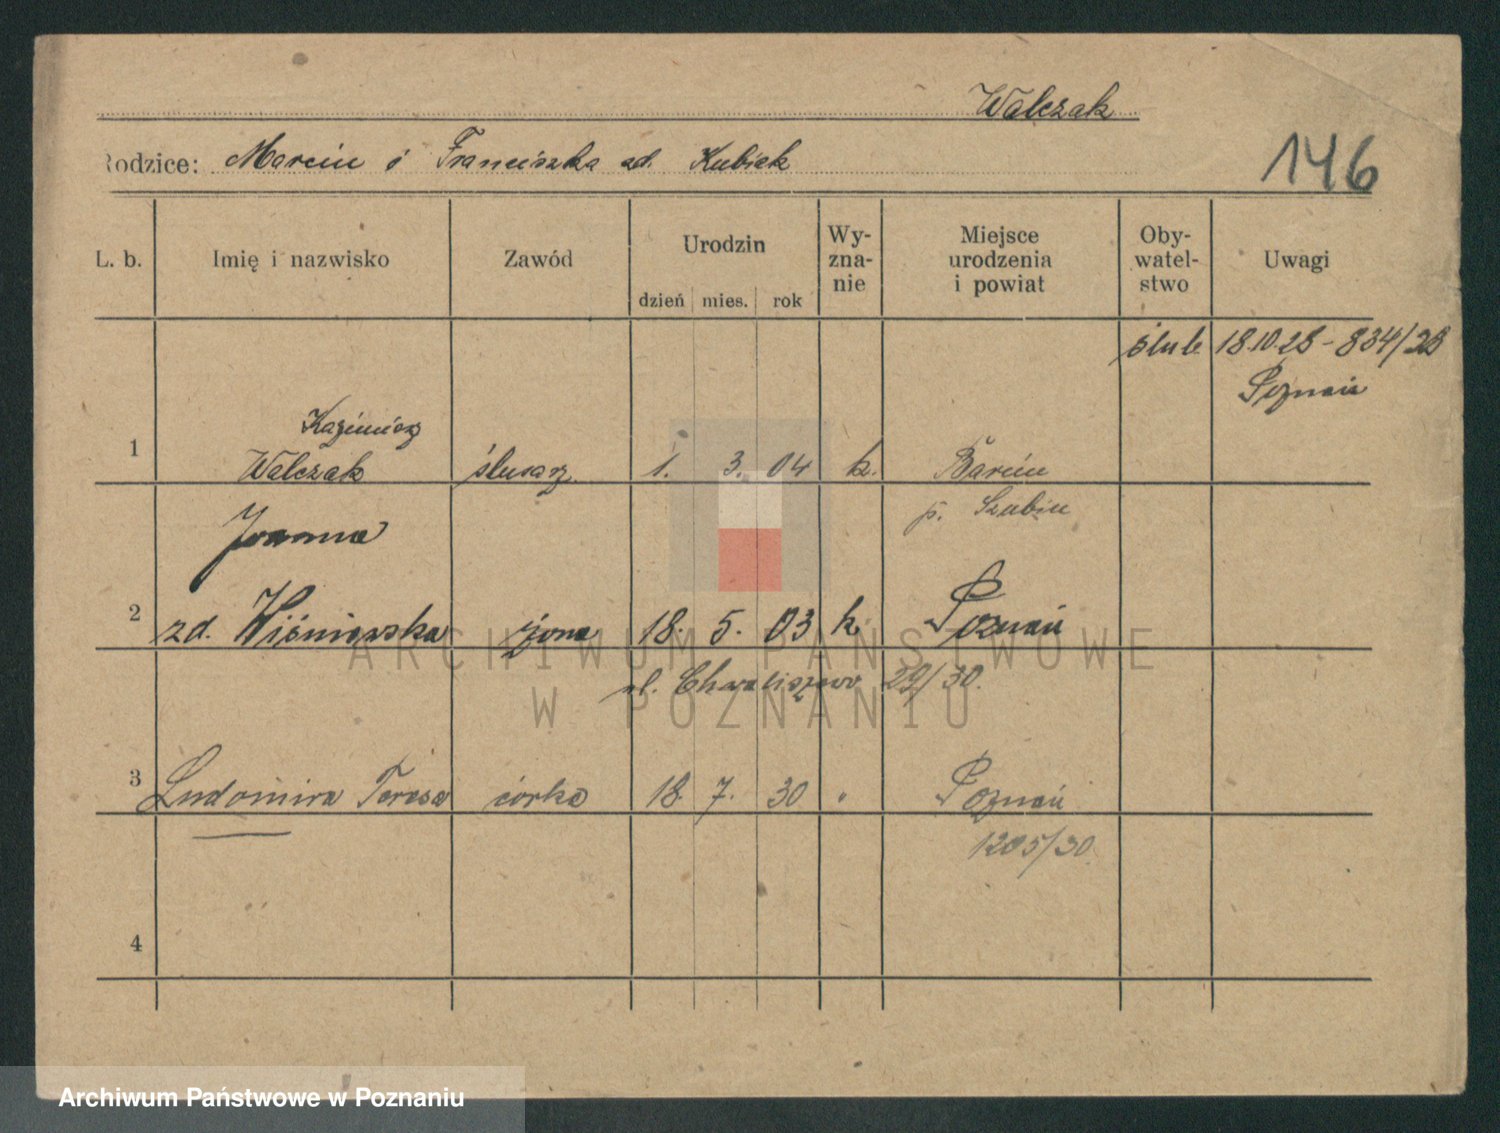 Walczak
Rodzice: Marcin i Franciszka zd. Kubiak
146
L. b. Imię i nazwisko Zawód Urodzin dzień mies. rok Wy-zna-nie Miejsce urodzenia i powiat Oby-watel-stwo Uwagi
ślub 18.10.28 - 834/28
Poznań
Kazimierz
1 Walczak ślusarz 1. 3. 04 k. Barcin
p. Szubin
Joanna
2 zd. Wiśniewska żona 18. 5. 03 k. Poznań
ARCHIWUM PAŃSTWOWE
ul. Chwaliszewo 29/30.
W POZNANIU
3 Ludomira Teresa córka 18. 7. 30 " Poznań
1205/30
4
Archiwum Państwowe w Poznaniu